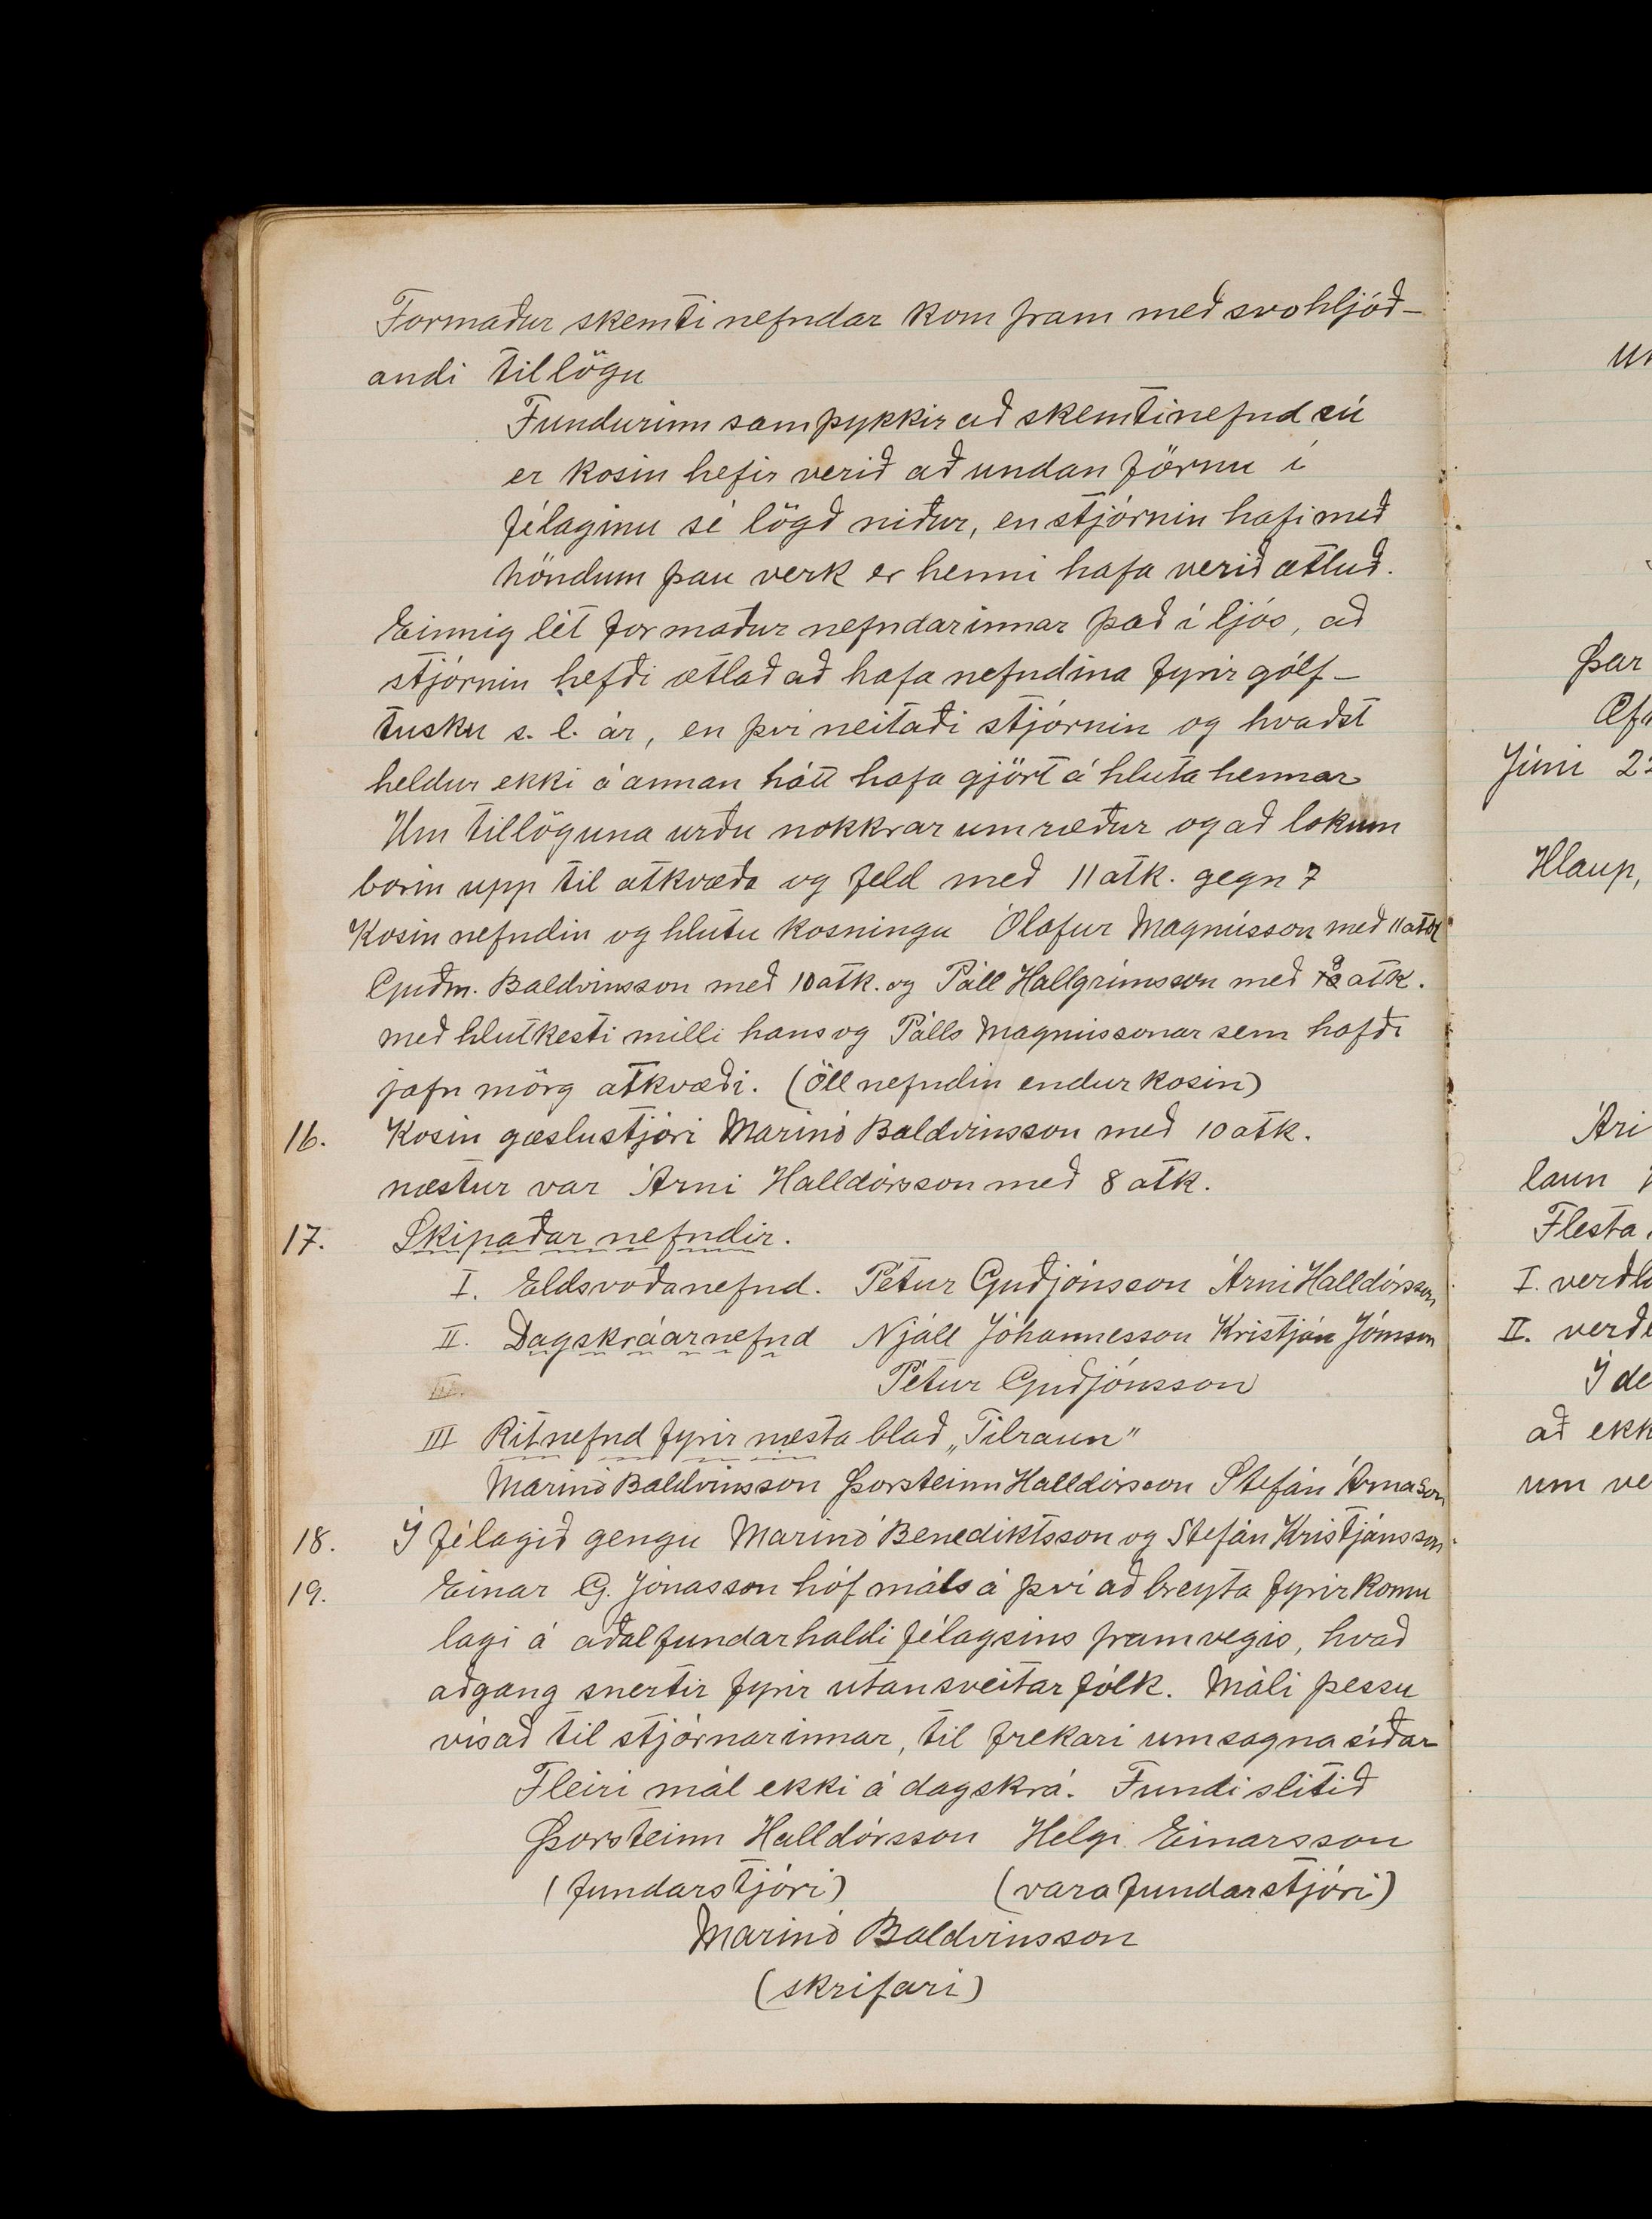 Formaður skemtinefndar kom fram með svohljóð-
andi tillögu
Fundurinn samþykkir að skemtinefnd sú
er kosin hefir verið að undanförnu í
félaginu sé lögð niður, en stjórnin hafi með
höndum þau verk er henni hafa verið ætluð.
Einnig lét formaður nefndarinnar það í ljós, að
stjórnin hefði ætlað að hafa nefndina fyrir gólf-
tusku s. l. ár, en því neitaði stjórnin og hvaðst
heldur ekki á annan hátt hafa gjört á hluta hennar
Um tillöguna urðu nokkrar umræður og að lokum
borin upp til atkvæða og feld með 11 atk. gegn 7
Kosin nefndin og hlutu kosningu Ólafur Magnússon með 11 atk
Guðm. Baldvinsson með 10 atk. og Páll Hallgrímsson með 9 atk.
með hlutkesti milli hans og Páls Magnússonar sem hafði
jafn mörg atkvæði. (Öll nefndin endurkosin)
16. Kosin gæslustjóri Marinó Baldvinsson með 10 atk.
næstur var Árni Halldórsson með 8 atk.
17. Skipaðar nefndir.
I. Eldsvoðanefnd. Pétur Guðjónsson Árni Halldórsson
II. Dagskráarnefnd Njáll Jóhannesson Kristján Jónsson
Pétur Guðjónsson
III Ritnefnd fyrir næsta blað „Tilraun"
Marinó Baldvinsson Þorsteinn Halldórsson Stefán Árnason
18. Í félagið gengu Marinó Benediktsson og Stefán Kristjánsson
19. Einar G. Jónasson hóf máls á því að breyta fyrirkomu
lagi á aðalfundarhaldi félagsins framvegis, hvað
aðgang snertir fyrir utansveitar fólk. Máli þessu
vísað til stjórnarinnar, til frekari umsagna síðar
Fleiri mál ekki á dagskrá. Fundi slitið
Þorsteinn Halldórsson Helgi Einarsson
(fundarstjóri) (varafundarstjóri)
Marinó Baldvinsson
(skrifari)
Þar
Júní
Hlaup,
Ári
laun
Flesta
I. verðl
II. verðl
Í de
að ekk
um ve